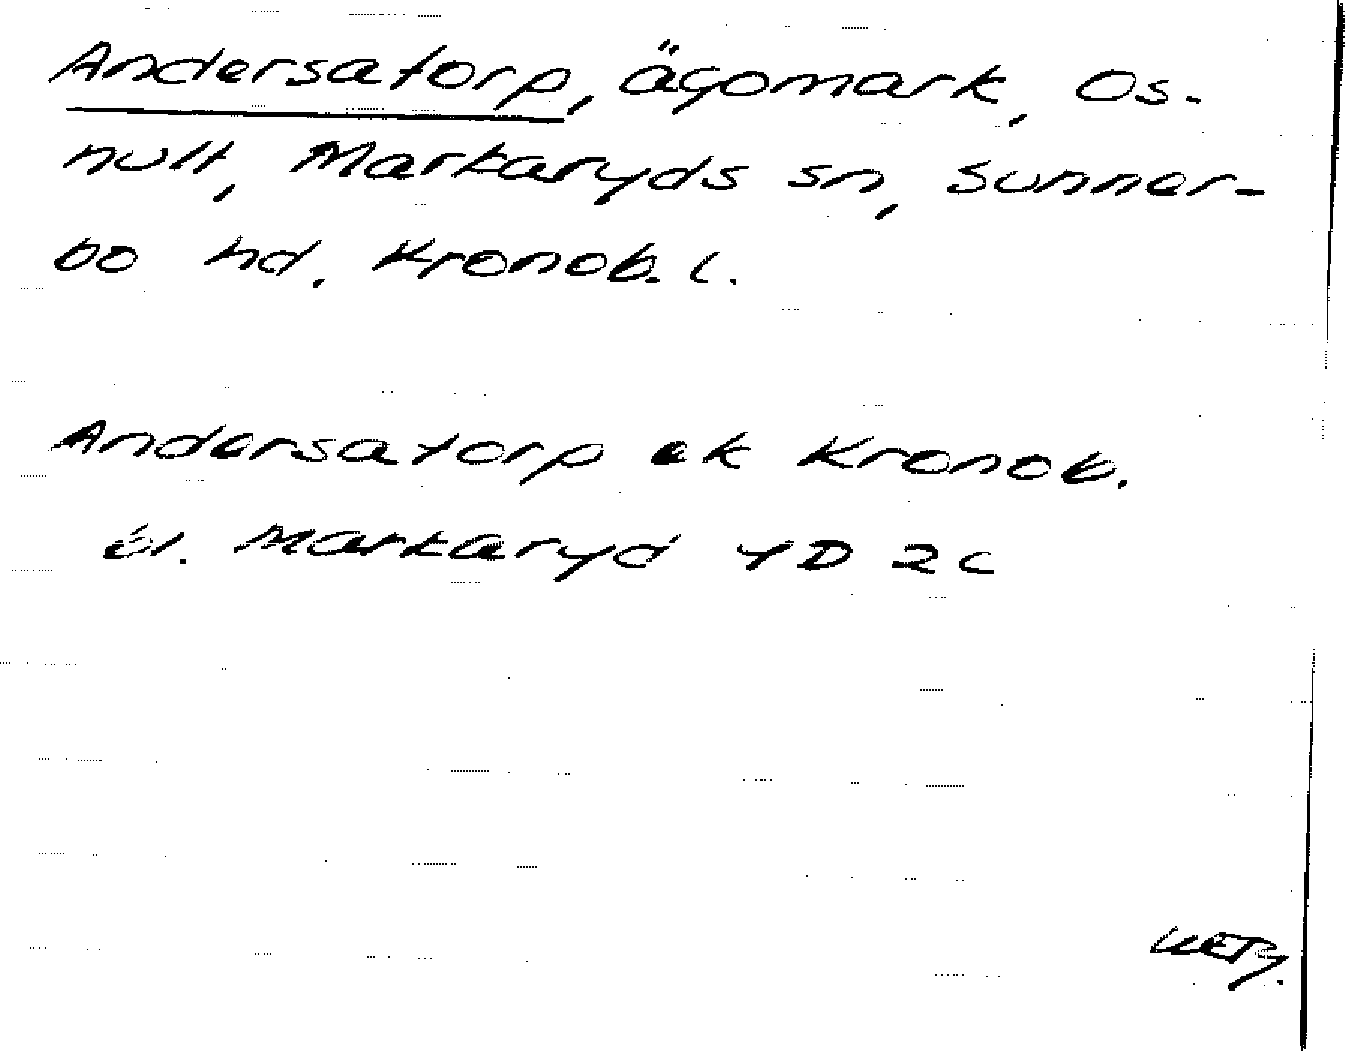 Andersatorp, ägomark, Os-
hult, Markaryds sn, Sunner-
bo hd. Kronob. l.
Andersatorp ek Kronob.
bl. Markaryd 4D 2c